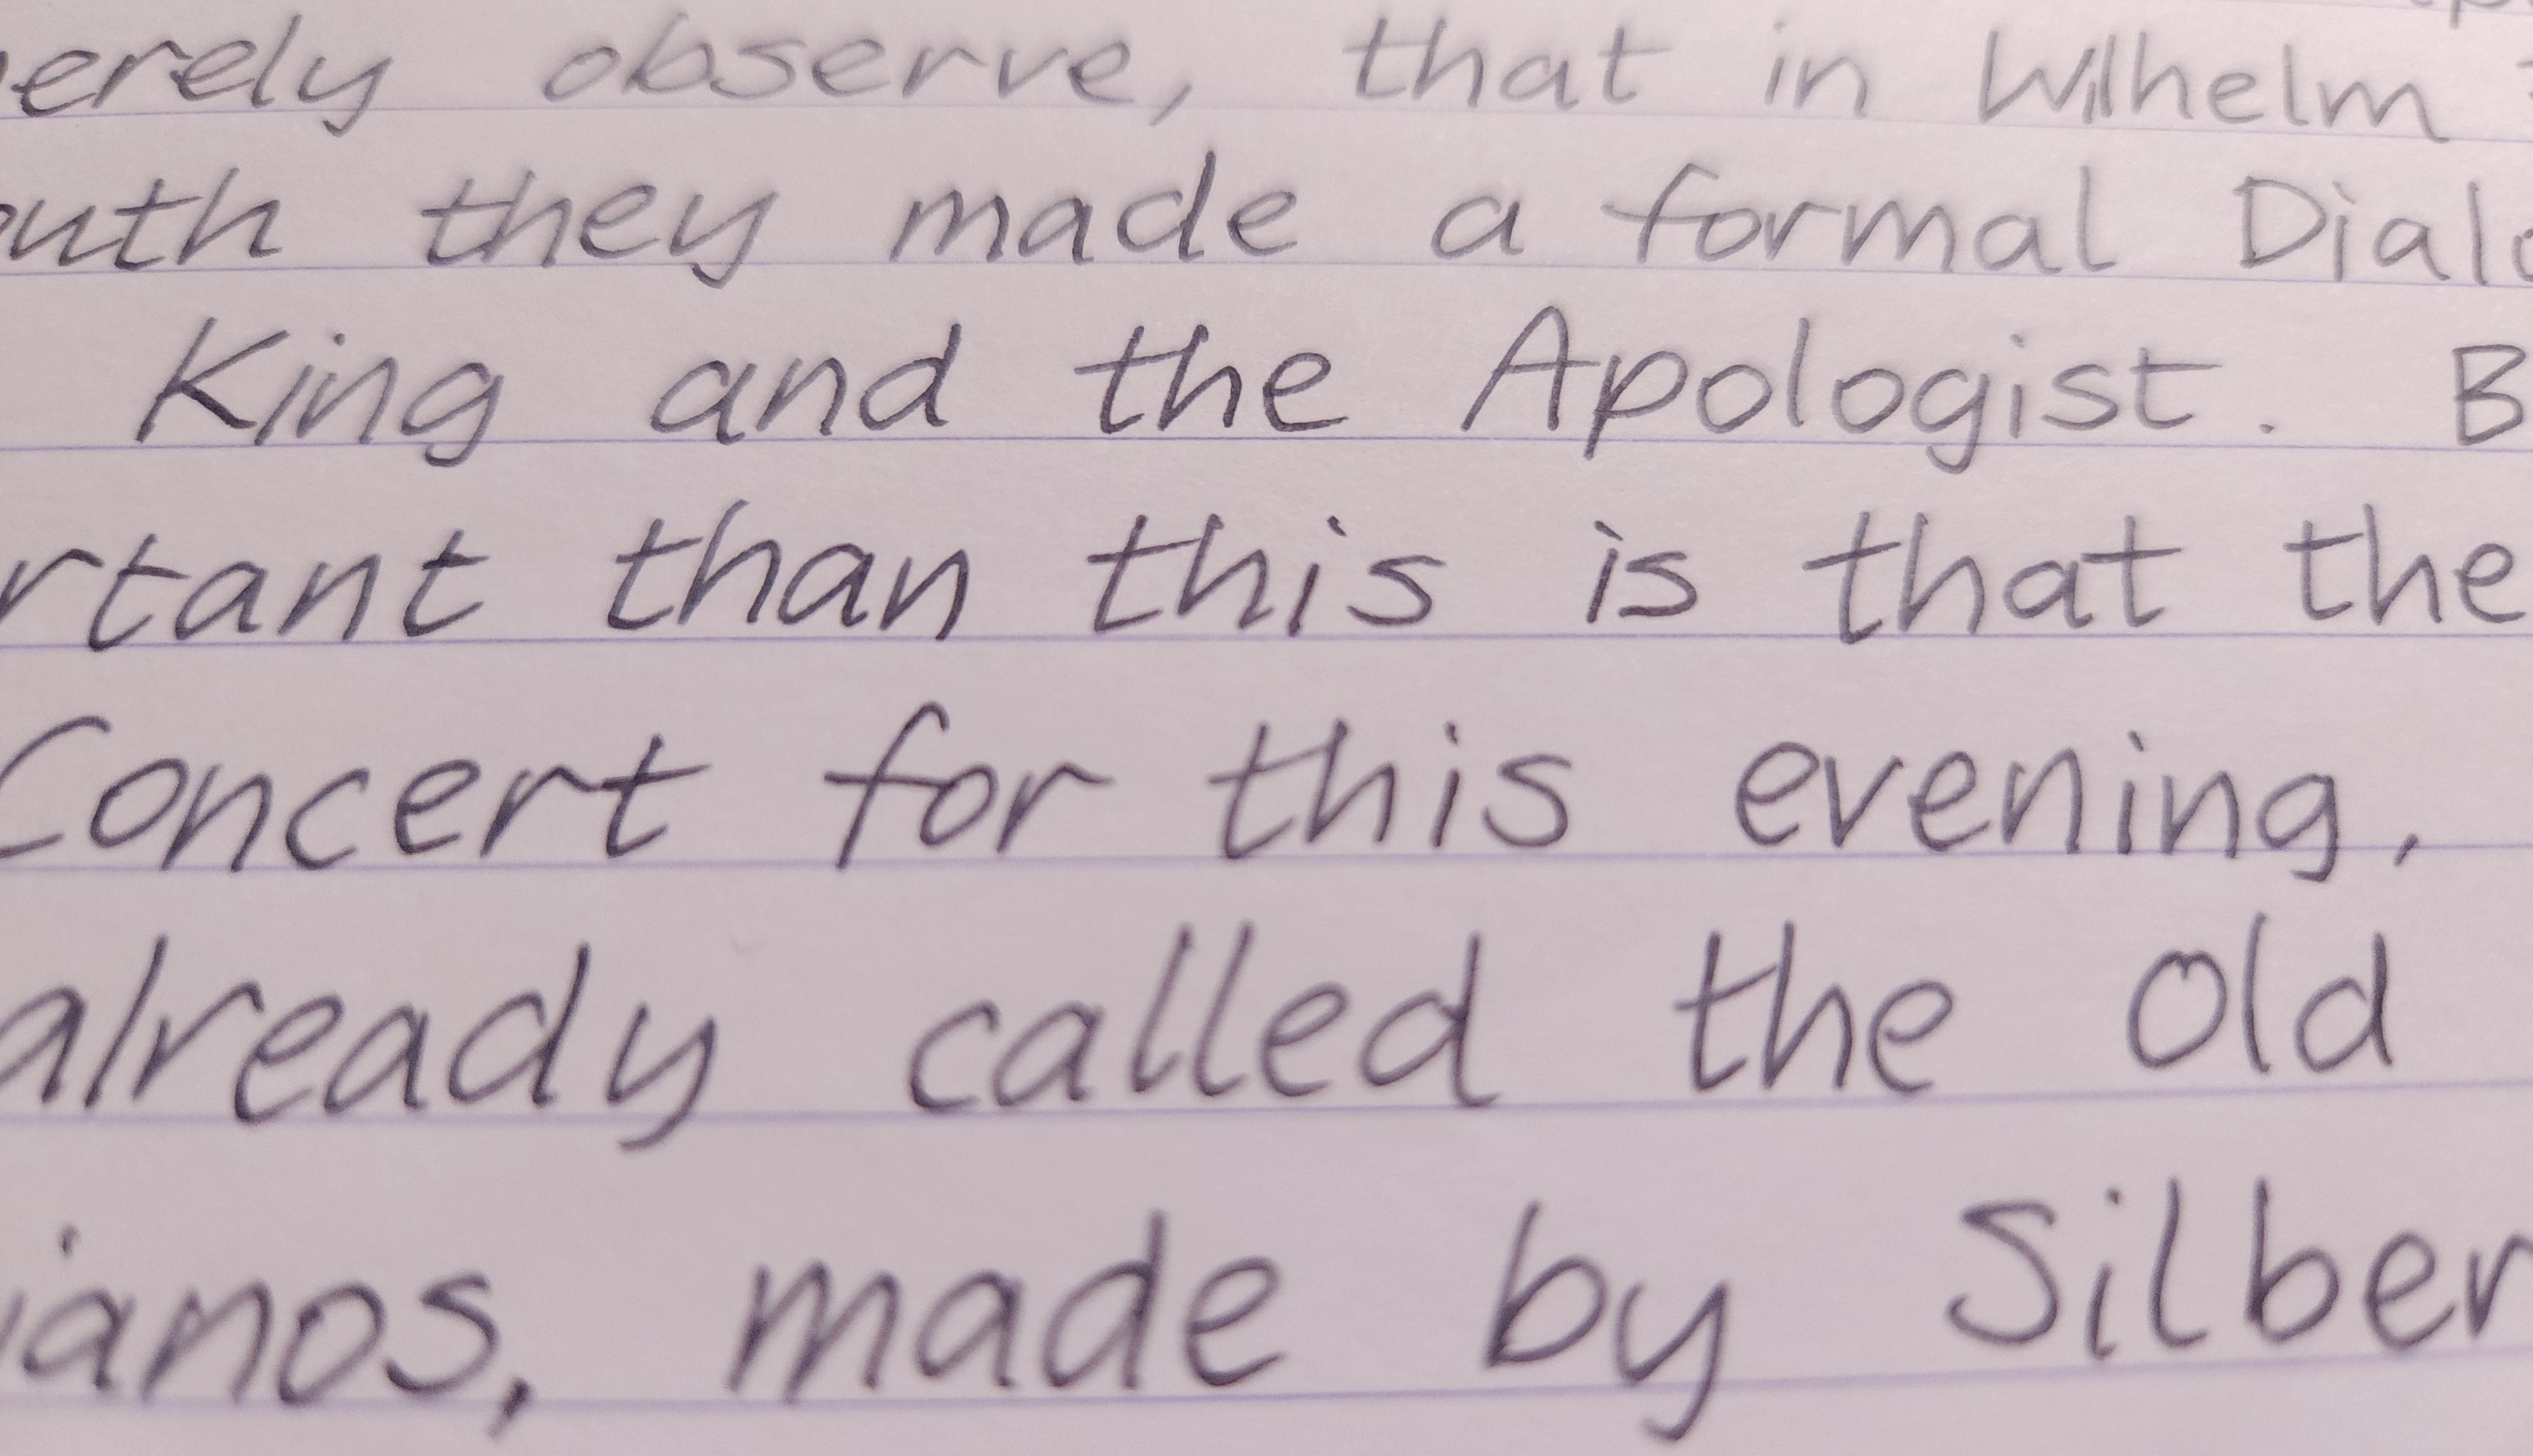 erely observe, that in Wilhelm
outh they made a formal Dialo
King and the Apologist. B
rtant than this is that the
Concert for this evening,
already called the old
ianos, made by Silber